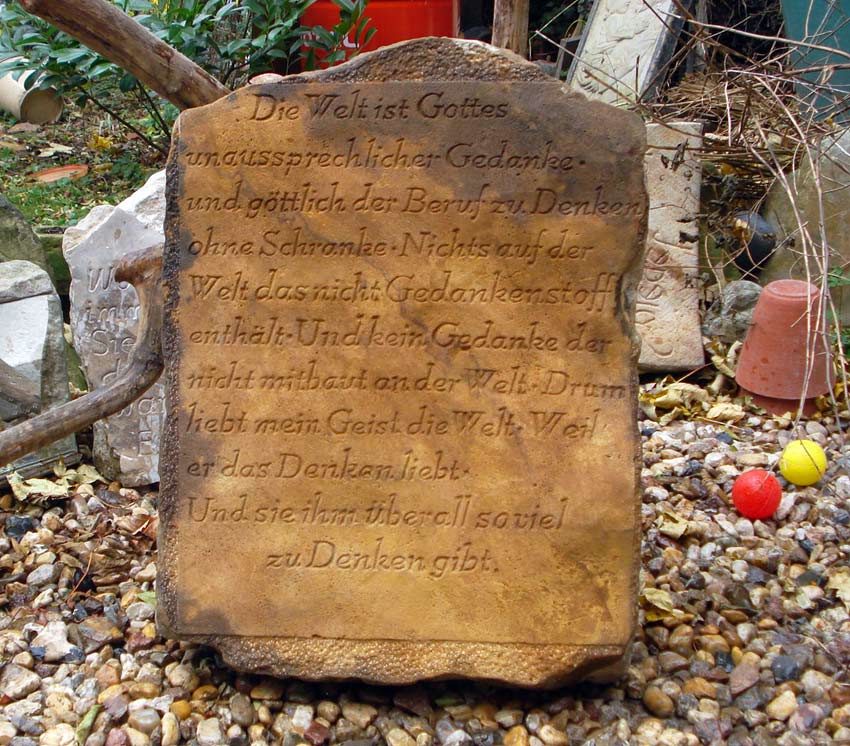 Die Welt ist Gottes
unaussprechlicher Gedanke ·
und göttlich der Beruf zu Denken
ohne Schranke · Nichts auf der
Welt das nicht Gedankenstoff
enthält · Und kein Gedanke der
nicht mitbaut an der Welt · Drum
liebt mein Geist die Welt · Weil
er das Denken liebt ·
Und sie ihm überall so viel
zu Denken gibt.